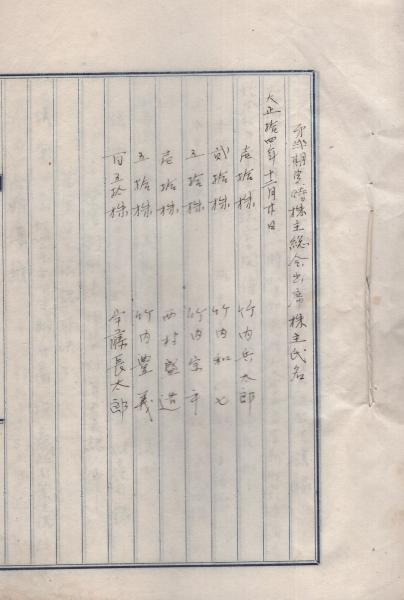 第弐期定時株主総会出席株主氏名
大正拾四年十二月廿日
壱拾株 竹内兵太郎
弐拾株 竹内和七
五拾株 竹内宗平
壱拾株 西村盛造
五拾株 竹内豊義
百五拾株 安藤長太郎